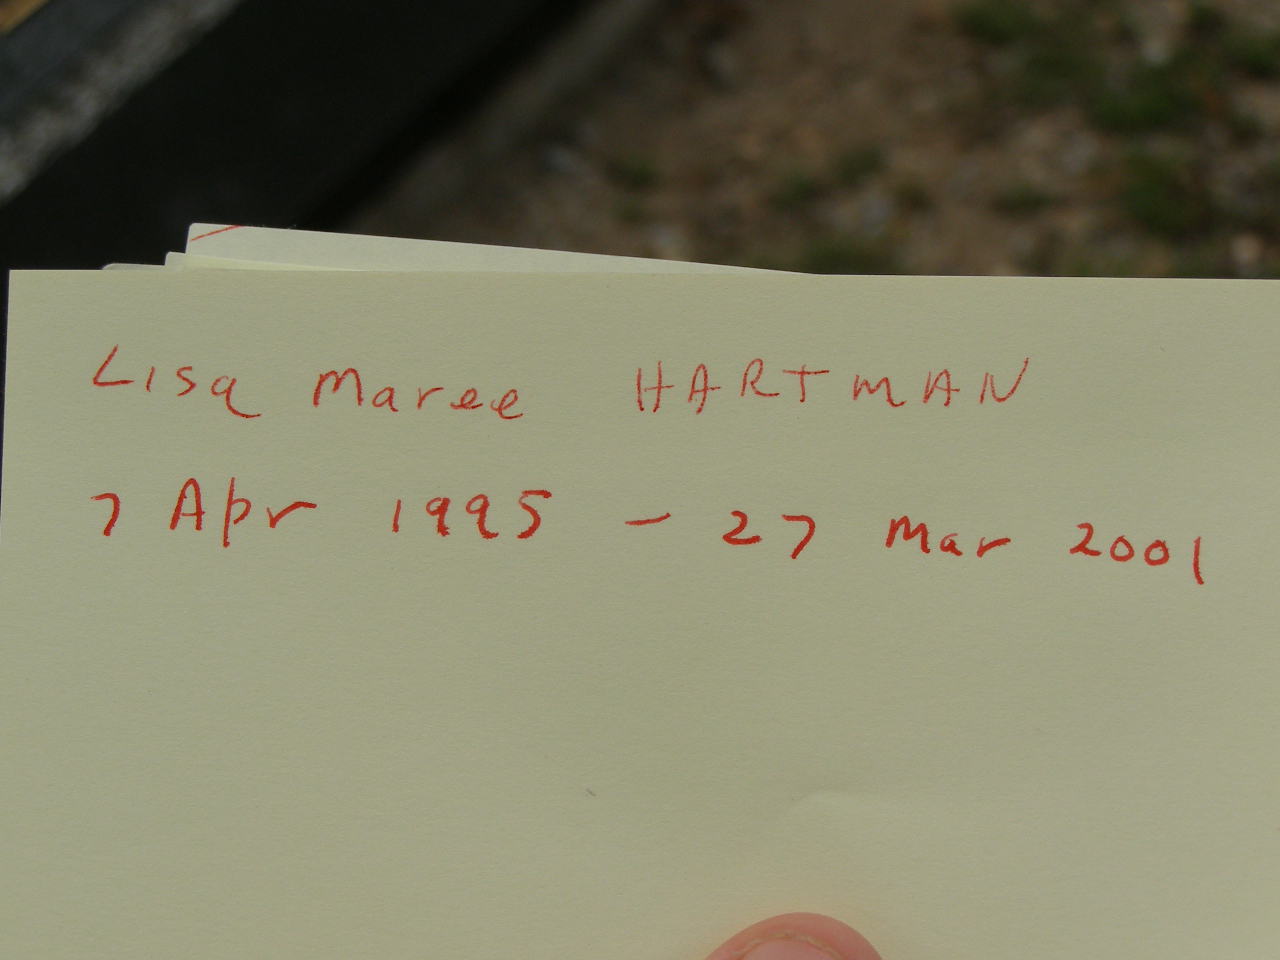 Lisa Maree HARTMAN
7 Apr 1995 - 27 Mar 2001